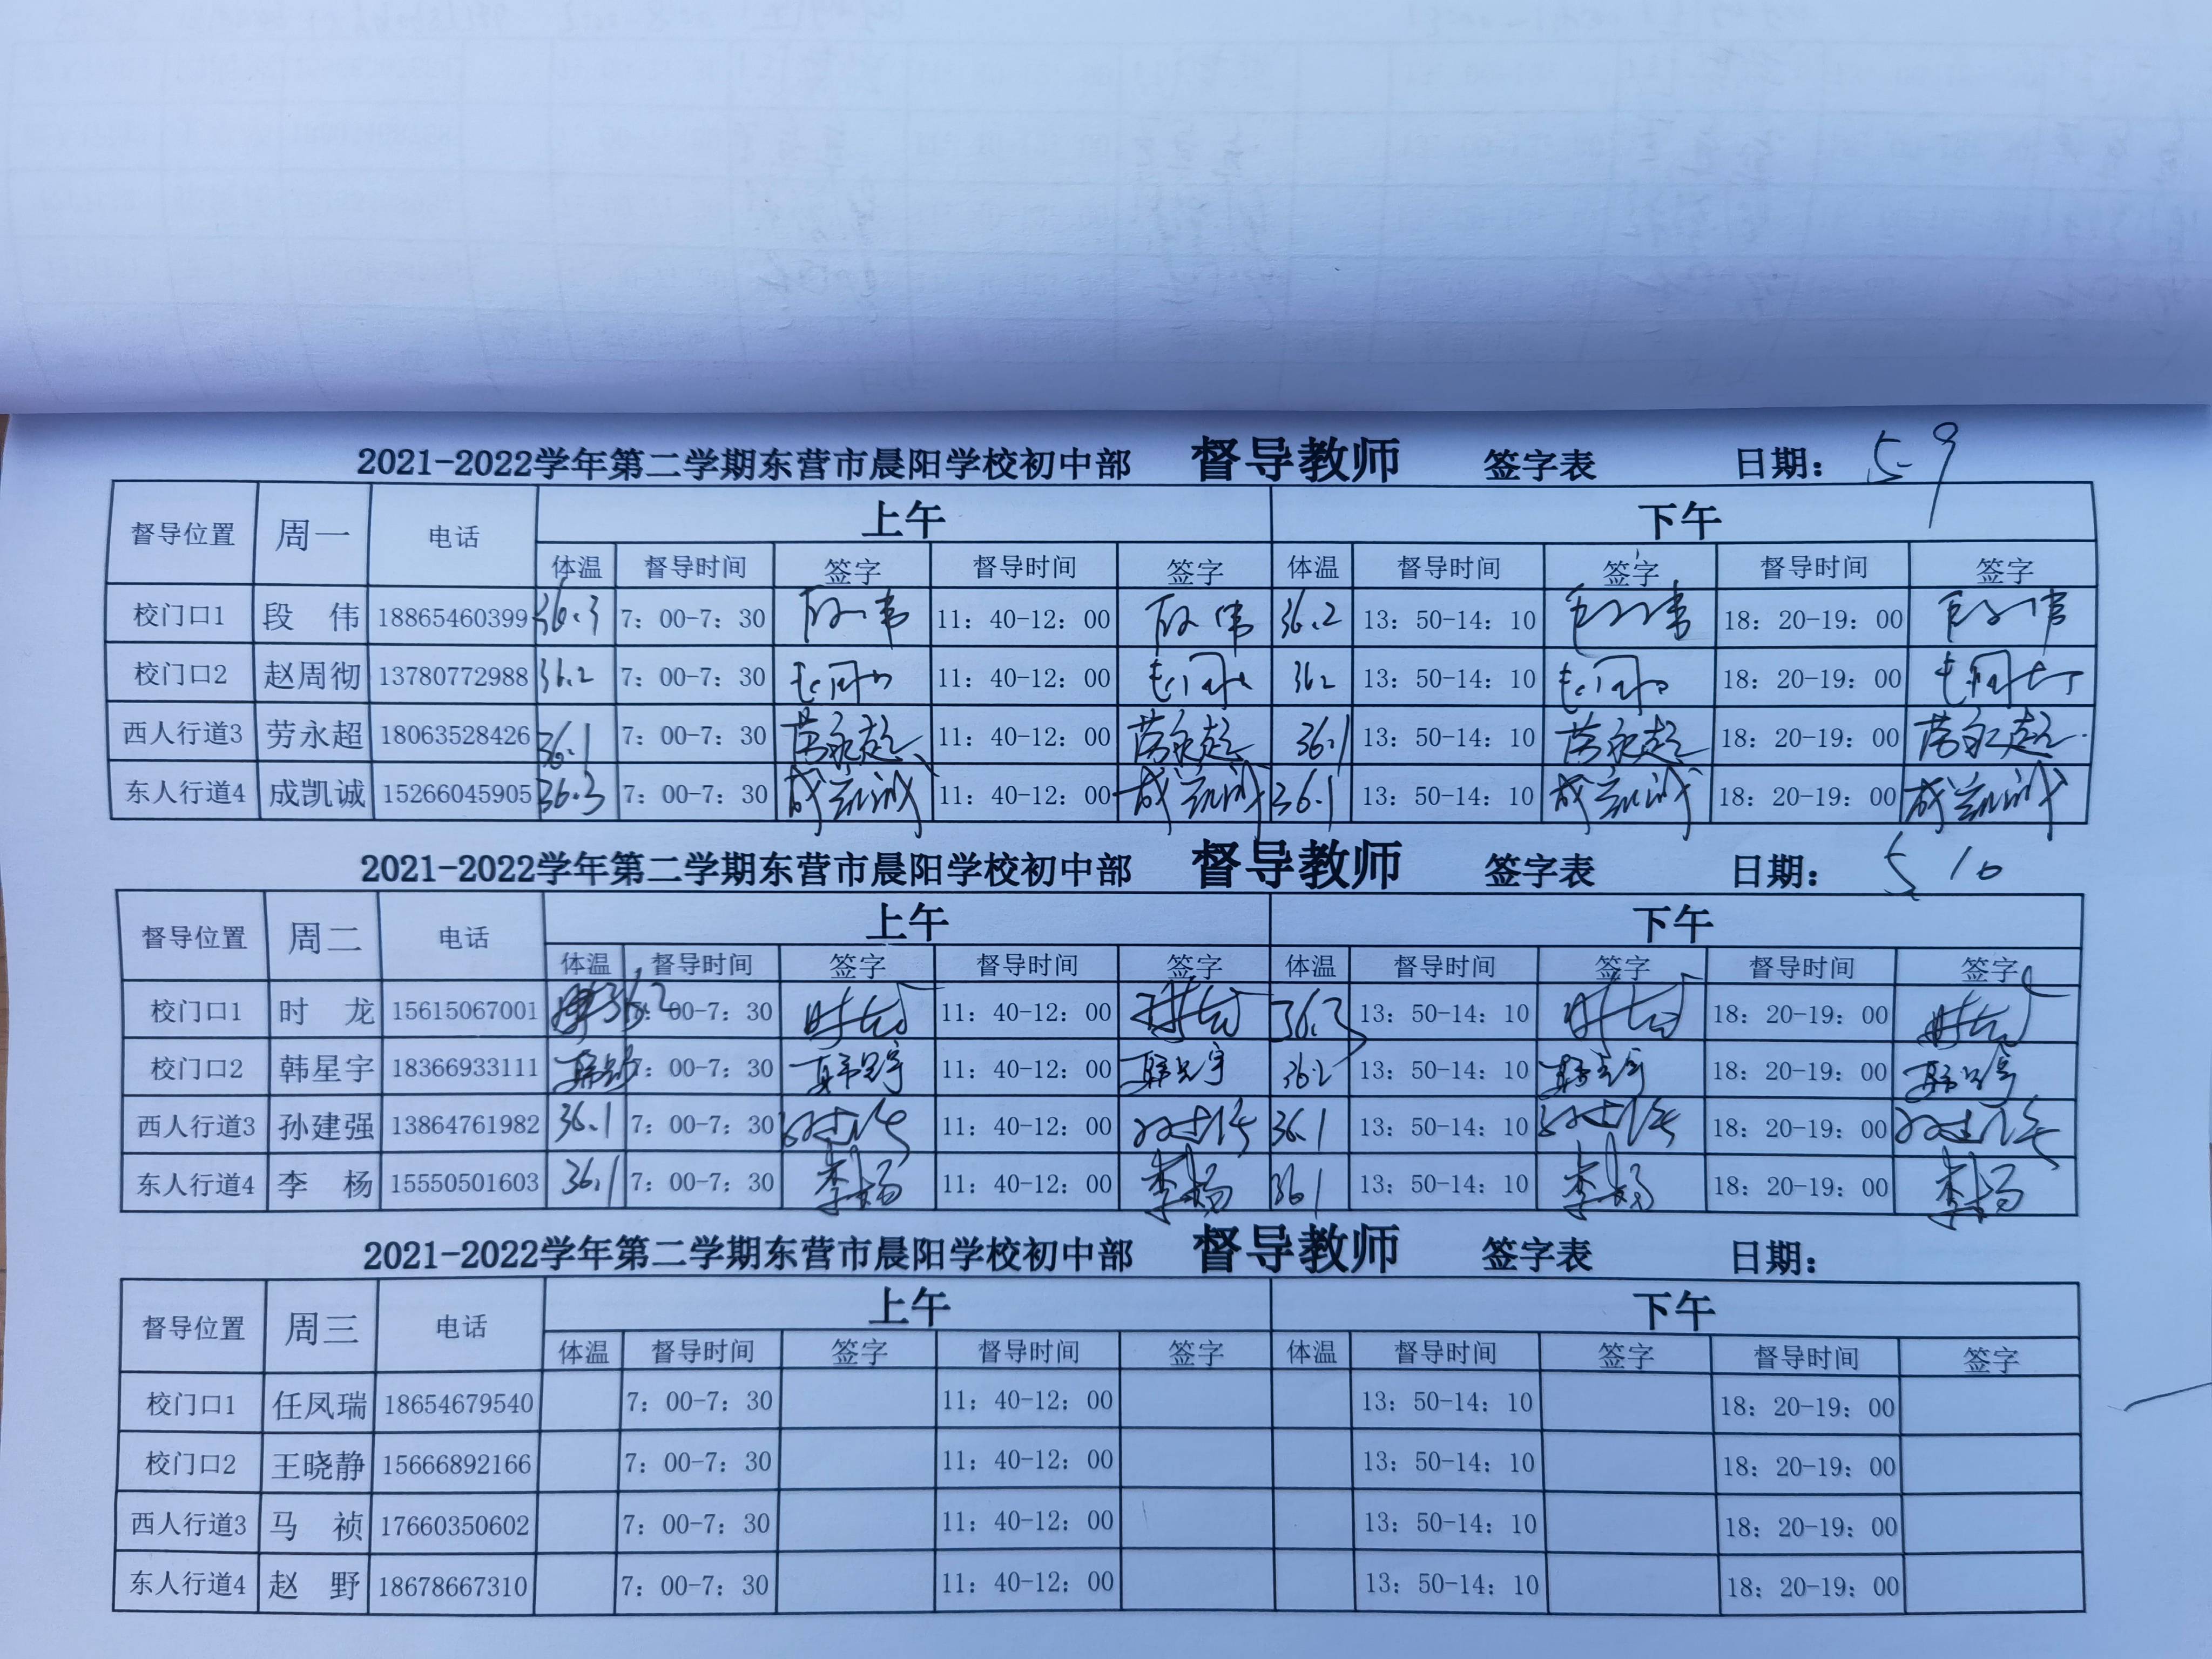 2021-2022学年第二学期东营市晨阳学校初中部 督导教师 签字表 日期： 5-9
督导位置 周一 电话 上午 下午
体温 督导时间 签字 督导时间 签字 体温 督导时间 签字 督导时间 签字
校门口1 段 伟 18865460399 36.3 7：00-7：30 段伟 11：40-12：00 段伟 36.2 13：50-14：10 段伟 18：20-19：00 段伟
校门口2 赵周彻 13780772988 36.2 7：00-7：30 11：40-12：00 36.2 13：50-14：10 18：20-19：00
西人行道3 劳永超 18063528426 36.1 7：00-7：30 劳永超 11：40-12：00 劳永超 36.1 13：50-14：10 劳永超 18：20-19：00 劳永超
东人行道4 成凯诚 15266045905 36.3 7：00-7：30 成凯诚 11：40-12：00 成凯诚 36.1 13：50-14：10 成凯诚 18：20-19：00 成凯诚
2021-2022学年第二学期东营市晨阳学校初中部 督导教师 签字表 日期： 5 10
督导位置 周二 电话 上午 下午
体温 督导时间 签字 督导时间 签字 体温 督导时间 签字 督导时间 签字
校门口1 时 龙 15615067001 36.2 7：00-7：30 时龙 11：40-12：00 时龙 36.2 13：50-14：10 时龙 18：20-19：00 时龙
校门口2 韩星宇 18366933111 7：00-7：30 韩星宇 11：40-12：00 韩星宇 36.2 13：50-14：10 韩星宇 18：20-19：00 韩星宇
西人行道3 孙建强 13864761982 36.1 7：00-7：30 孙建强 11：40-12：00 孙建强 36.1 13：50-14：10 孙建强 18：20-19：00 孙建强
东人行道4 李 杨 15550501603 36.1 7：00-7：30 李杨 11：40-12：00 李杨 36.1 13：50-14：10 李杨 18：20-19：00 李杨
2021-2022学年第二学期东营市晨阳学校初中部 督导教师 签字表 日期：
督导位置 周三 电话 上午 下午
体温 督导时间 签字 督导时间 签字 体温 督导时间 签字 督导时间 签字
校门口1 任凤瑞 18654679540 7：00-7：30 11：40-12：00 13：50-14：10 18：20-19：00
校门口2 王晓静 15666892166 7：00-7：30 11：40-12：00 13：50-14：10 18：20-19：00
西人行道3 马 祯 17660350602 7：00-7：30 11：40-12：00 13：50-14：10 18：20-19：00
东人行道4 赵 野 18678667310 7：00-7：30 11：40-12：00 13：50-14：10 18：20-19：00